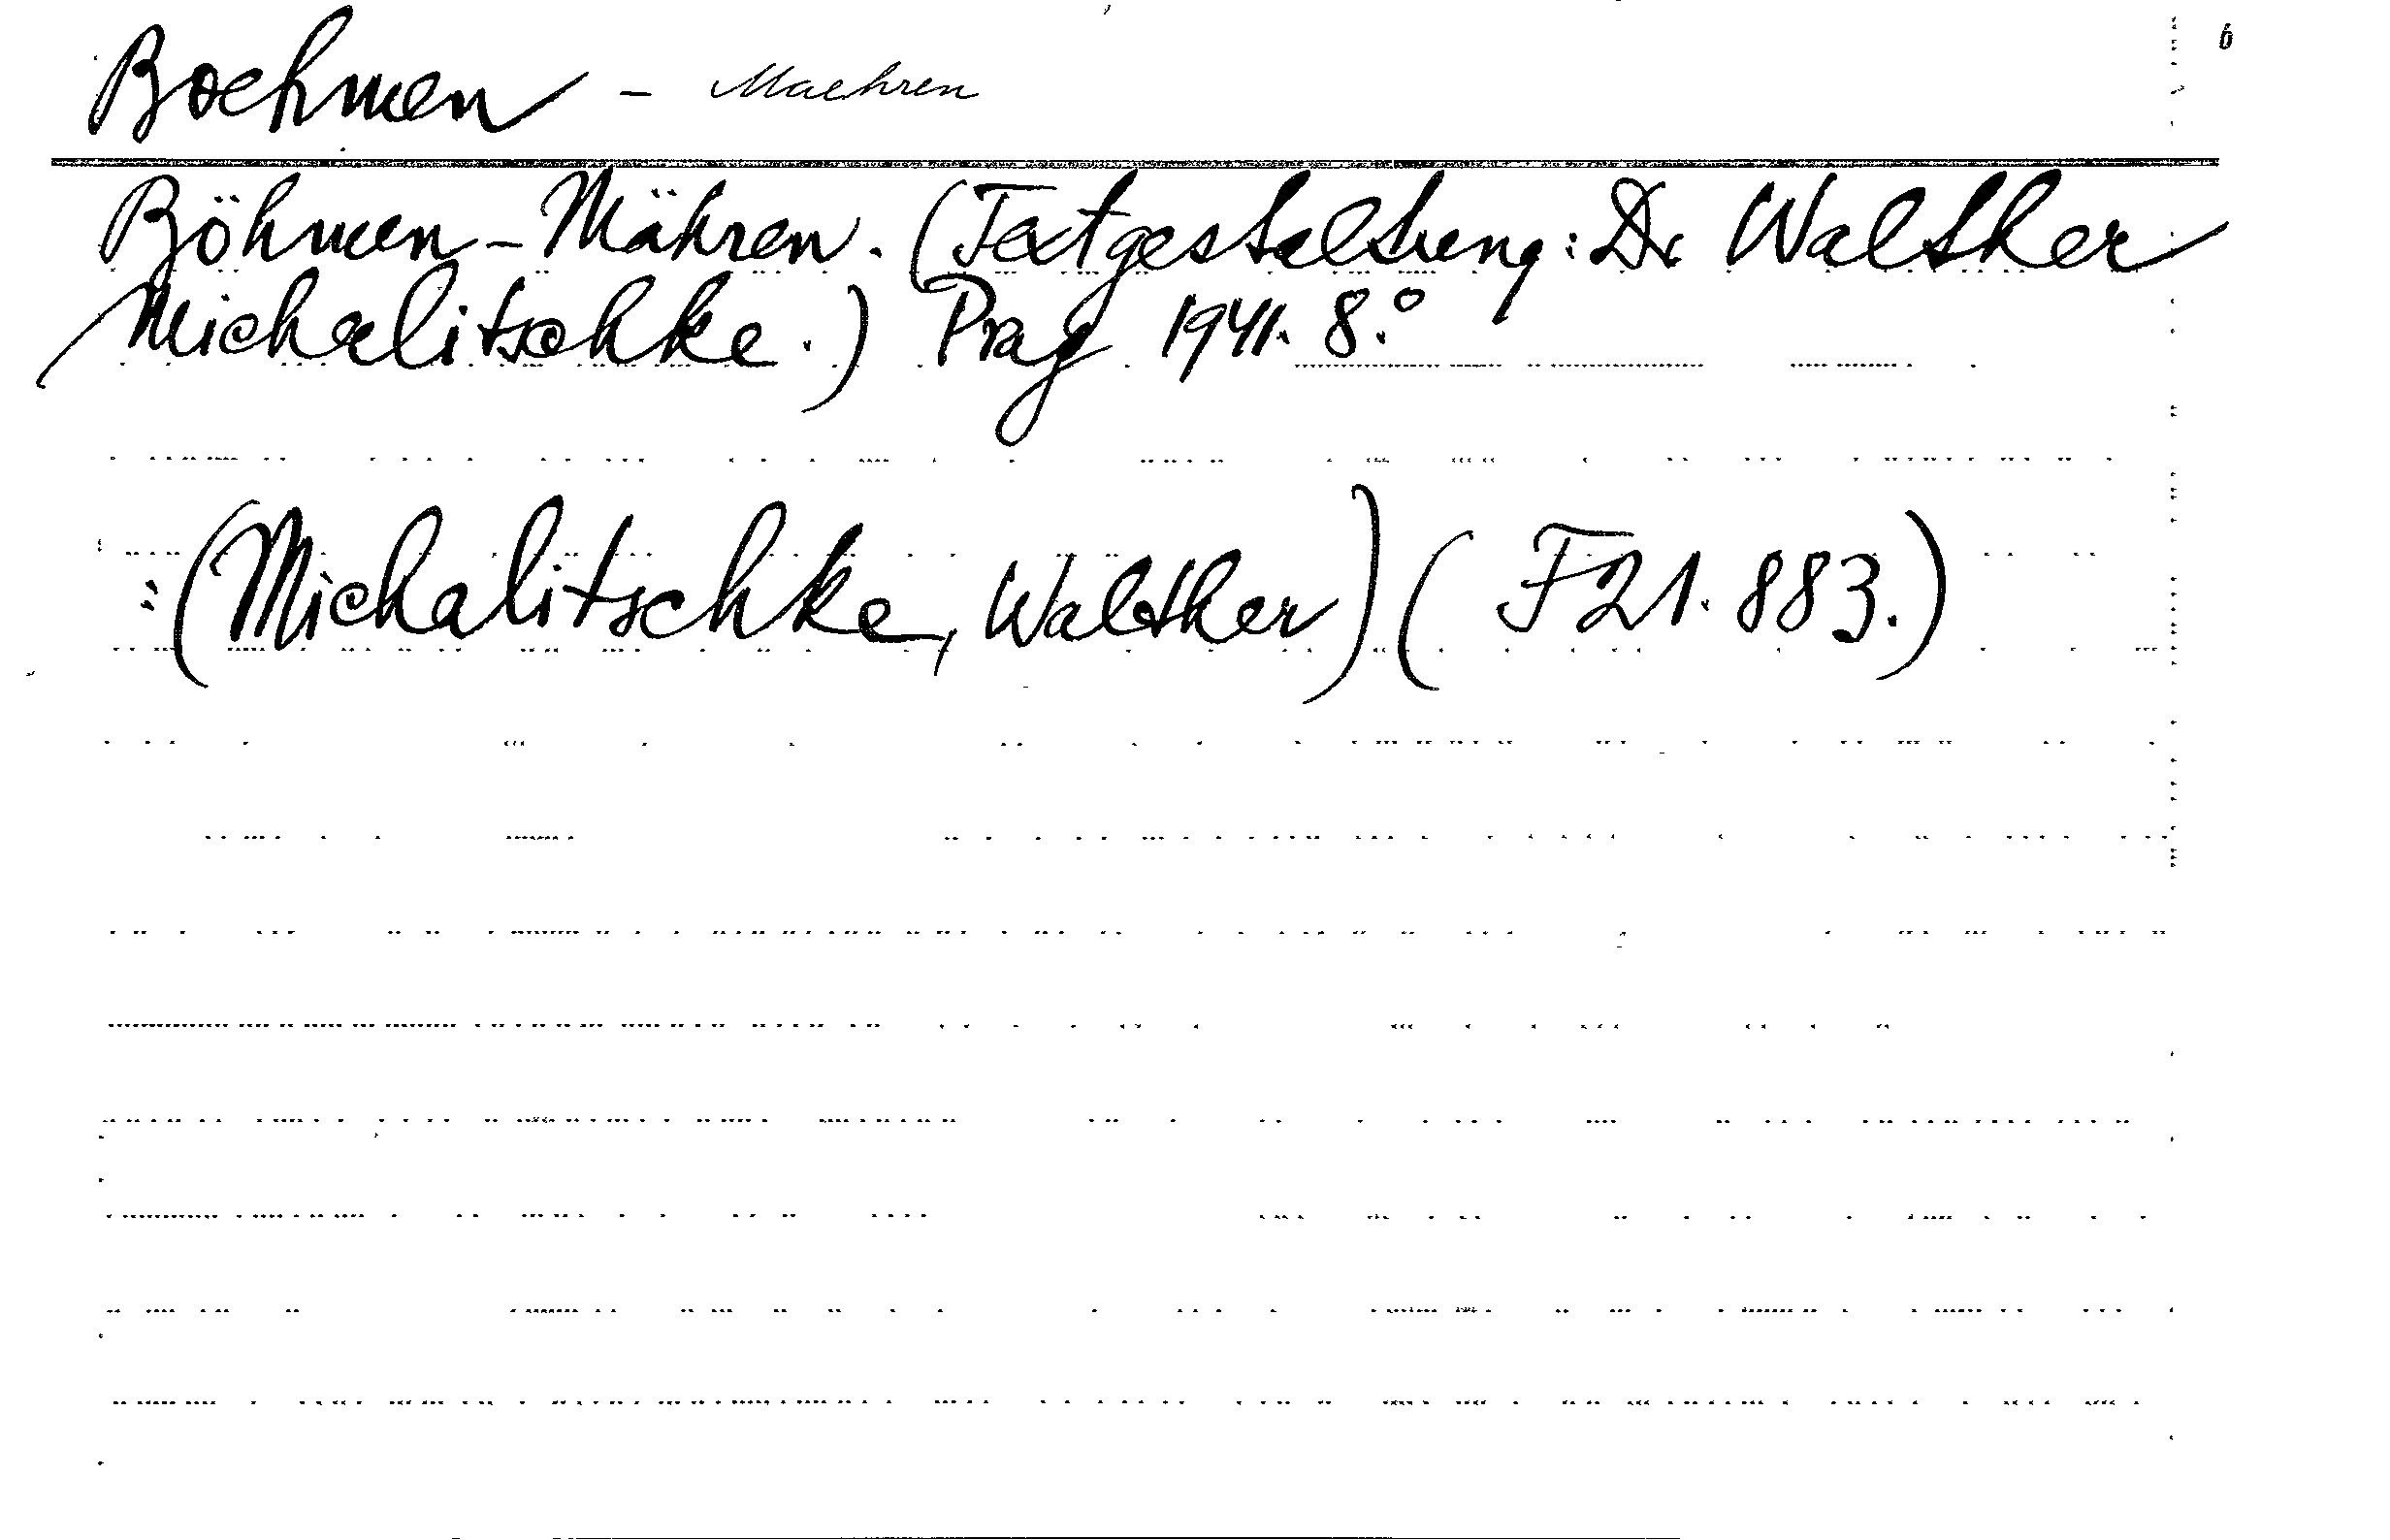 6
Boehmen - Maehren
Böhmen-Mähren. (Textgestaltung: Dr Walther
Michalitschke.) Prag 1941. 8.°
(Michalitschke, Walther) (F21.883.)